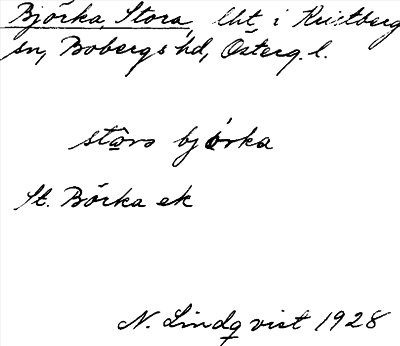 Björka, Stora, lht i Kristberg
sn, Bobergs hd, Österg. l.
störo björka
St. Börka ek
N. Lindqvist 1928